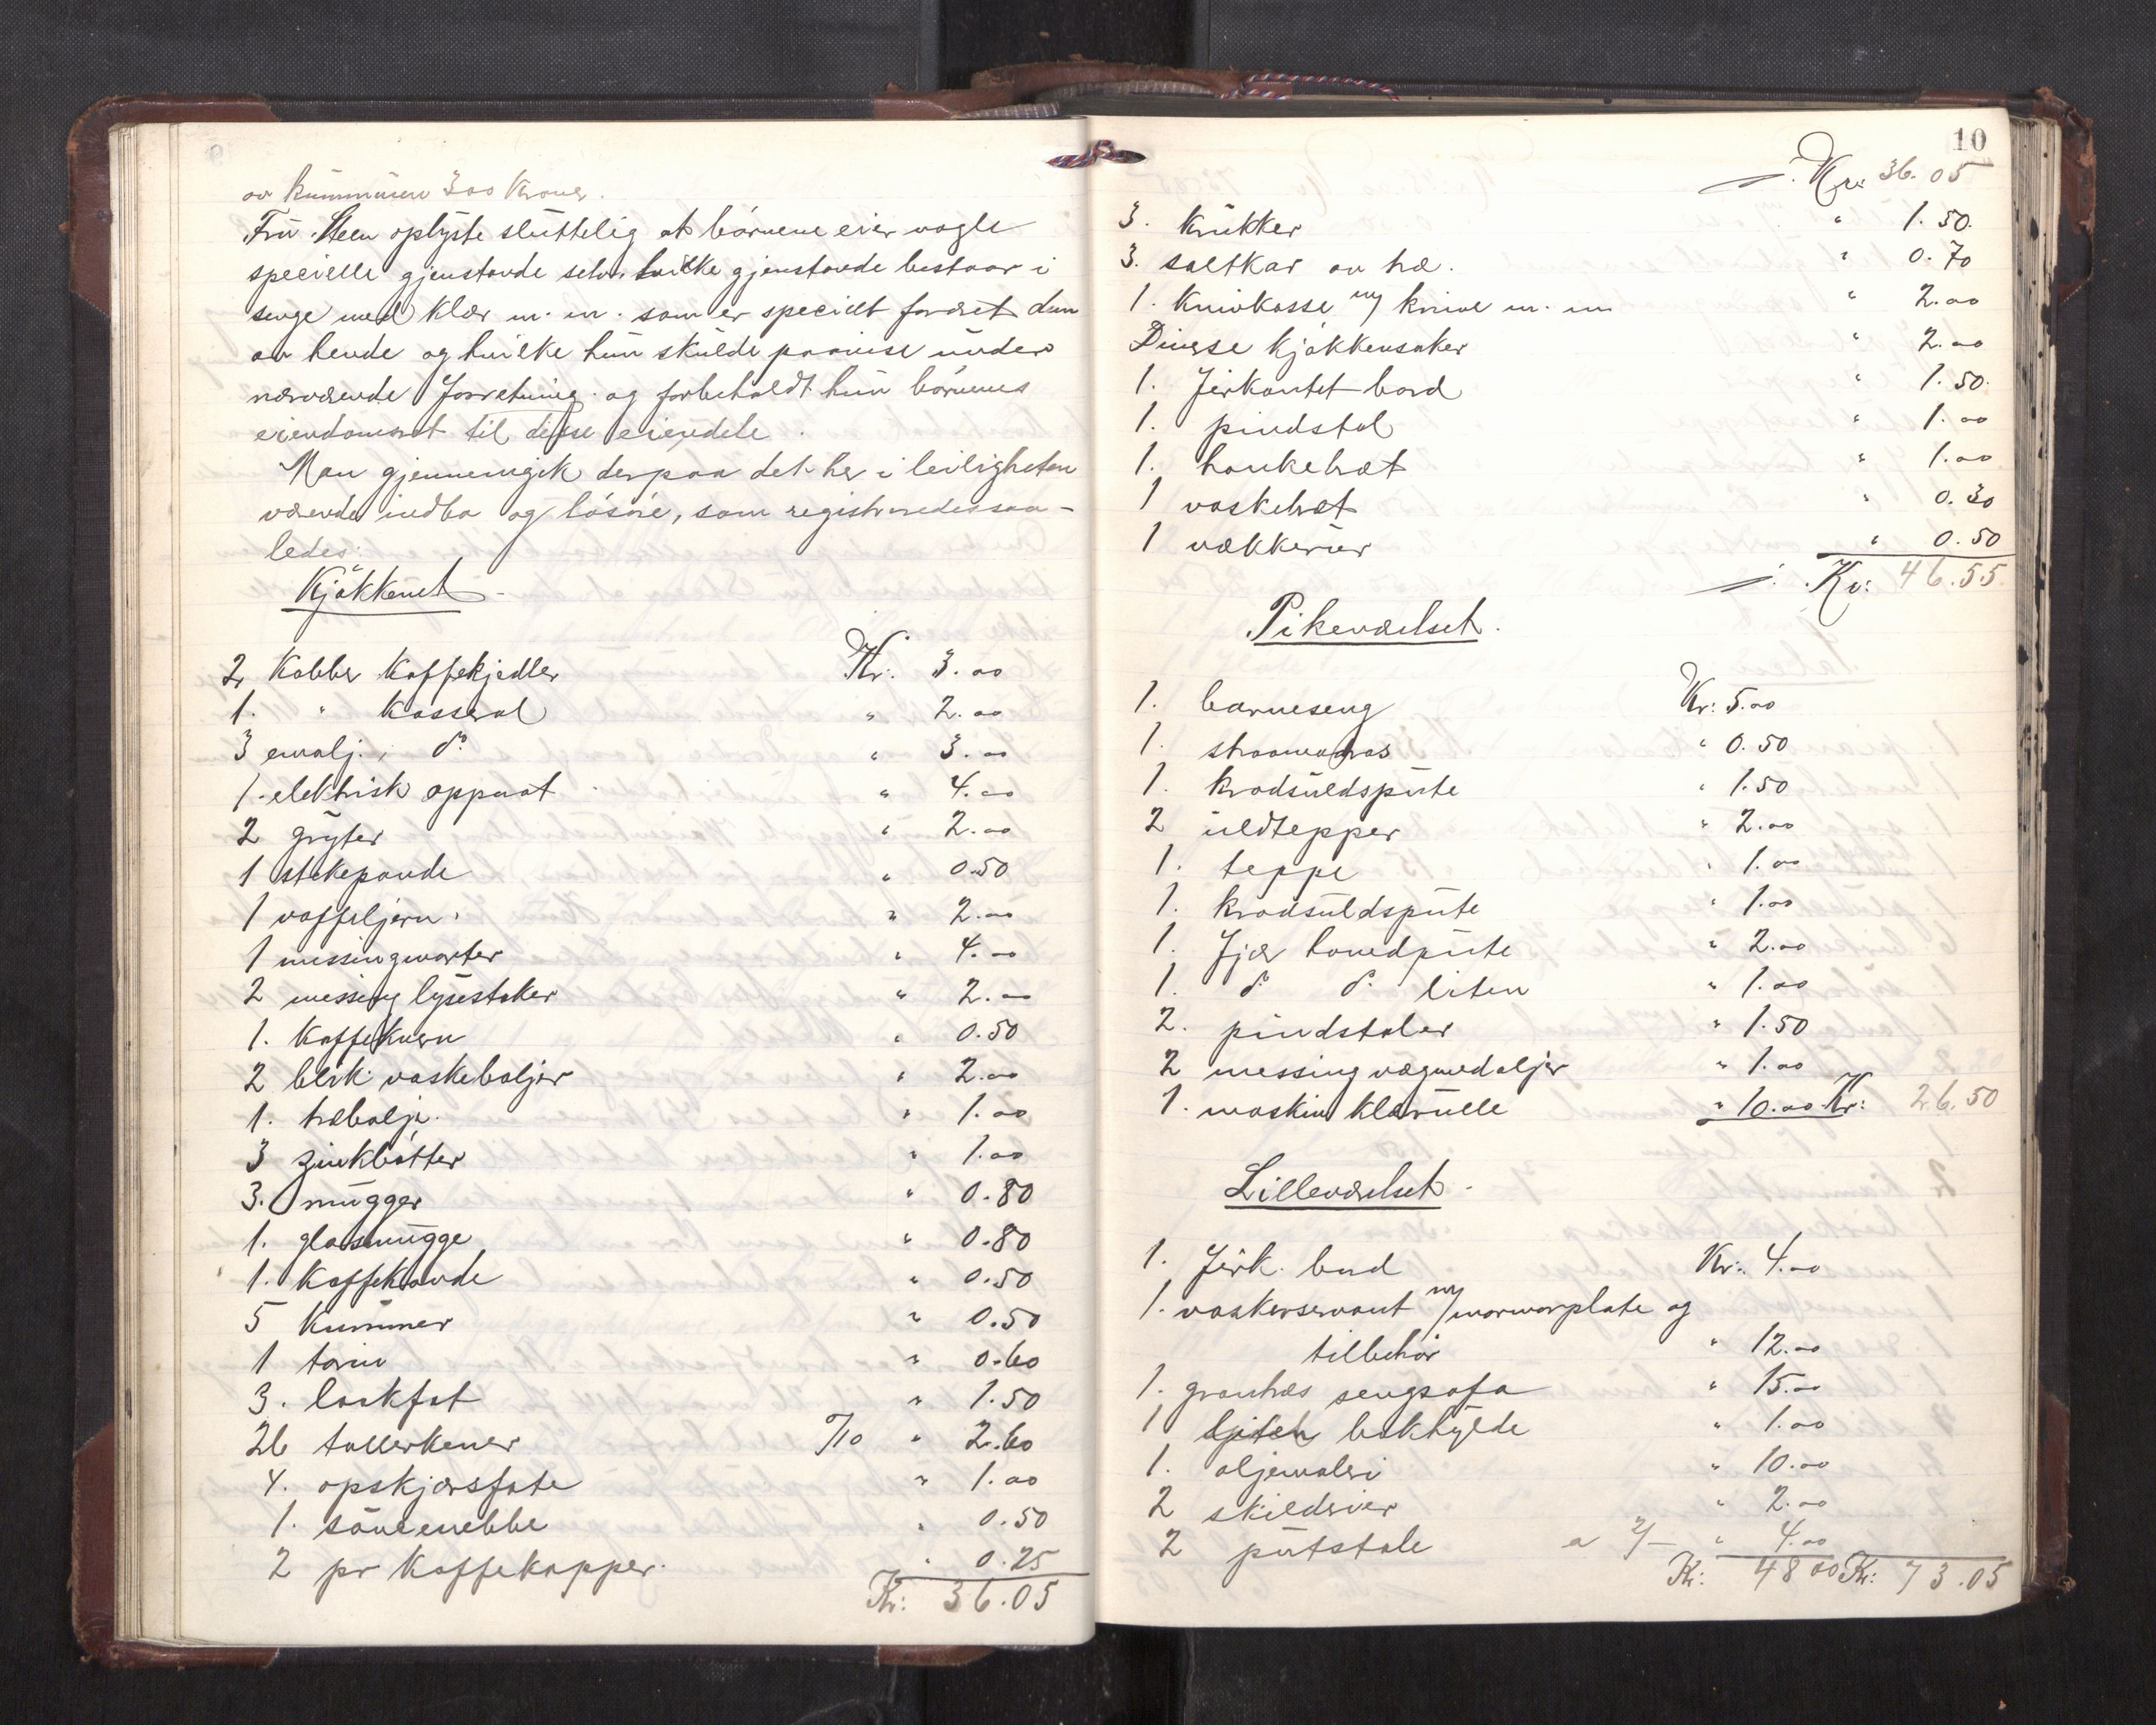 av kummunen 300 Kroner.
Frü Steen oplyste slüttelig at börnene eier nogle
specielle gjenstande selv. hvilke gjenstande bestaar i
senge med klær m. m. som er specielt foræret dem
av hende og hvilke hün skülde paavise ünder
nærværende forretning. og forbeholdt hün börnenes
eiendomsret til disse eiendele.
Man gjennemgik derpaa det her i leiligheten
værende indbo og lösöre, som registreredes saa-
ledes:
Kjökkenet
2 Kobber Kaffekjedler Kr: 3.00
1. " Kasserol " 2.00
3 emalj. do " 3.00
1. elektrisk apparat " 4.00
2 gryter " 2.00
1 stekepande " 0.50
1 vaffeljern. " 2.00
1 messingmorter " 4.00
2 messing lysestaker " 2.00
1. Kaffekvern " 0.50
2 blik. vaskebaljer " 2.00
1. træbalje. " 1.00
3 zinkbötter " 1.00
3. mügger " 0.80
1. glasmügge " 0.80
1. Kaffekande " 0.50
5 Kümmer " 0.50
1 terin " 0.60
3. laakfat " 1.50
26 tallerkener 7/10 " 2.60
4. opskjærsfate " 1.00
1. sausenebbe " 0.50
2 pr Kaffekopper. " 0.25
Kr: 36.05
10
Kr. 36.05
3. Krükker " 1.50.
3. saltkar av træ. " 0.70
1. Knivkasse m/ knive m. m " 2.00
Diverse kjökkensaker " 2.00
1. Firkantet bord " 1.50.
1. pindstol " 1.00
1. hankebræt " 1.00
1 vaskebræt " 0.30
1 vækkerür " 0.50
Kr: 46.55
Pikeværelset.
1. barneseng Kr: 5.00
1. straamadras " 0.50
1. kradsüldspüte " 1.50
2 üldtepper " 2.00
1. teppe " 1.00
1. kradsüldspüte " 1.00
1. Fjær hovedpüte " 2.00
1. do do liten " 1.00
2. pindstoler " 1.50
2 messing vægmedaljer " 1.00
1. maskin klærülle " 10.00 Kr: 26.50
Lilleværelset.
1. Firk. bord Kr: 4.00
1. vaskerservant m/marmorplate og
tilbehör " 12.00
1. grantræs sengsofa " 15.00
1 liten bokhylde " 1.00
1. oljemaleri " 10.00
2 skilderier " 2.00
2 pütstole a 2/- " 4.00
Kr: 48 00 Kr: 73.05